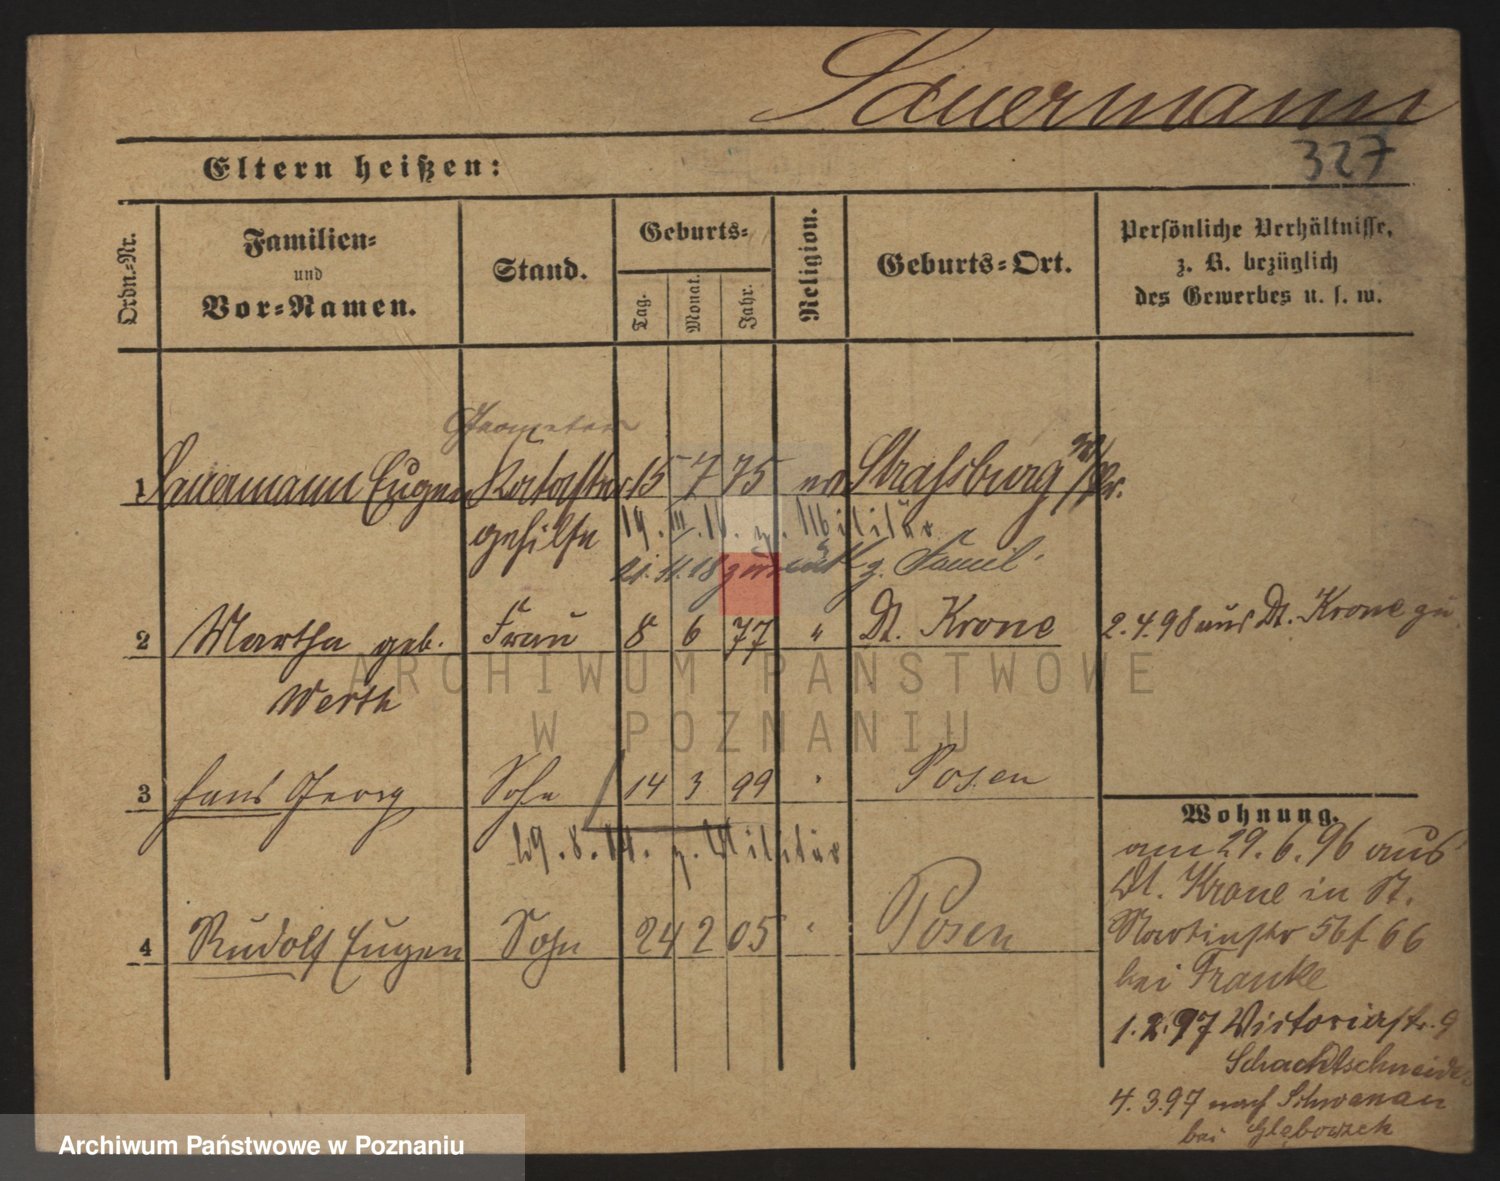 Sauermann
327
Eltern heißen:
Ordn.-Nr.
Familien-
und
Vor-Namen.
Stand.
Geburts-
Tag.
Monat.
Jahr.
Religion.
Geburts-Ort.
Persönliche Verhältnisse,
z. B. bezüglich
des Gewerbes u. s. w.
Geometer
1 Sauermann Eugen Kataster 15 7 75 ev Strasburg W/Pr.
gehilfe 19. III. 16. z. Militär
21. 11. 18 zurück z. Famil.
2 Martha geb. Frau 8 6 77 " Dt. Krone 2.4.98 aus Dt. Krone zu
Werth
ARCHIWUM PAŃSTWOWE
W POZNANIU
3 Hans Georg Sohn 14 3 99 " Posen
29. 8. 14. z. Militär
4 Rudolf Eugen Sohn 24 2 05 " Posen
Wohnung.
am 29. 6. 96 aus
Dt. Krone in St.
Martinstr 56 f 66
bei Franke
1. 2. 97 Victoriastr. 9
Schachtschneider
4. 3. 97 nach
bei
Archiwum Państwowe w Poznaniu